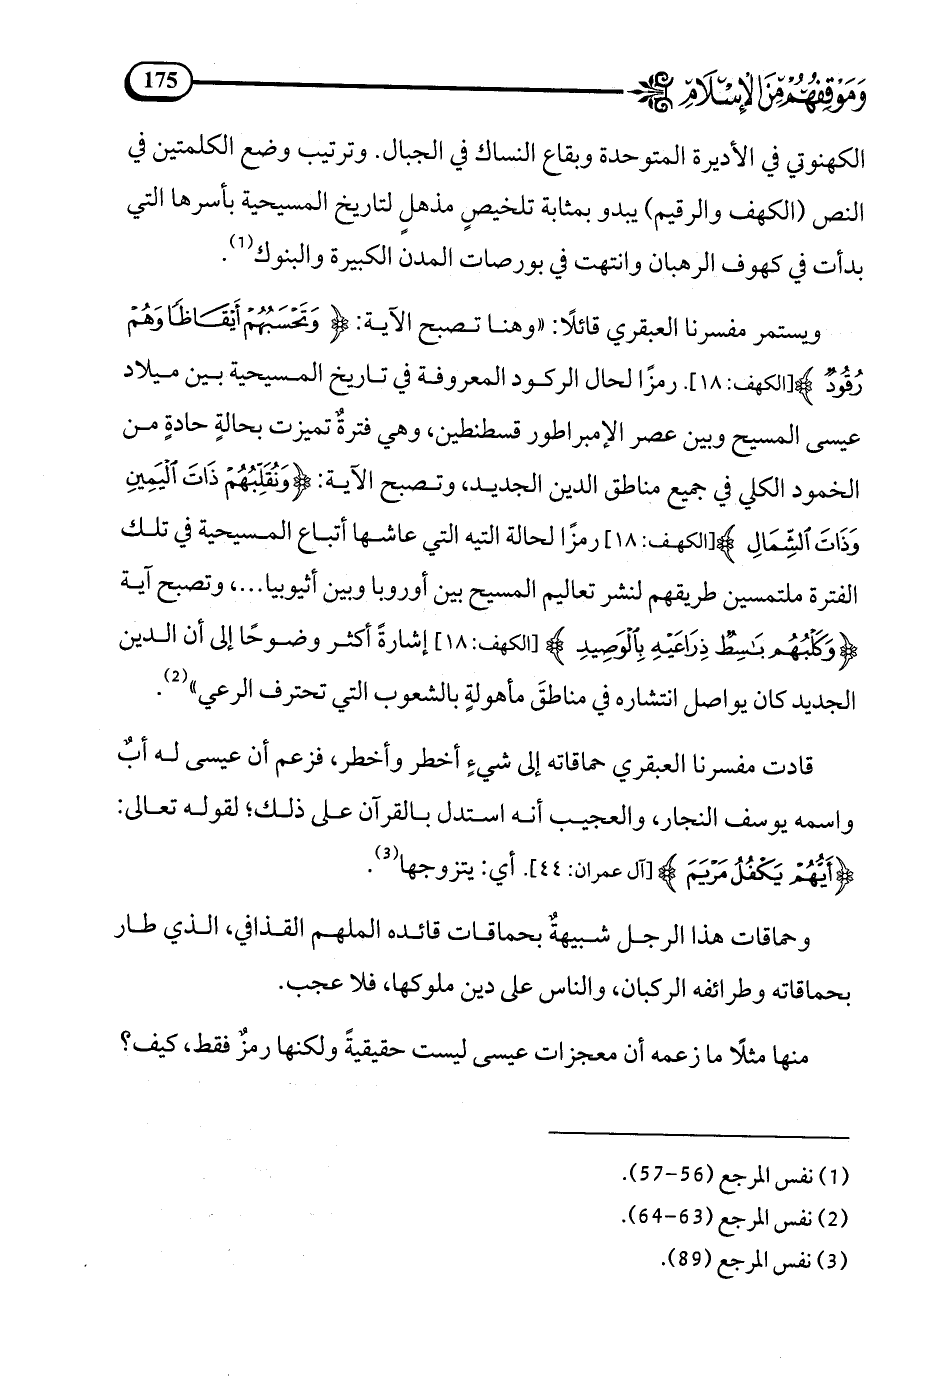 وَمَوْقِفُهُمْ مِنَ الْإِسْلَامِ 175
الكهنوتي في الأديرة المتوحدة وبقاع النساك في الجبال. وترتيب وضع الكلمتين في
النص (الكهف والرقيم) يبدو بمثابة تلخيصٍ مذهلٍ لتاريخ المسيحية بأسرها التي
بدأت في كهوف الرهبان وانتهت في بورصات المدن الكبيرة والبنوك(1).
ويستمر مفسرنا العبقري قائلًا: «وهنا تصبح الآية: ﴿ وَتَحْسَبُهُمْ أَيْقَاظًا وَهُمْ
رُقُودٌ ﴾[الكهف: ١٨]. رمزًا لحال الركود المعروفة في تاريخ المسيحية بين ميلاد
عيسى المسيح وبين عصر الإمبراطور قسطنطين، وهي فترةٌ تميزت بحالةٍ حادةٍ من
الخمود الكلي في جميع مناطق الدين الجديد، وتصبح الآية: ﴿وَنُقَلِّبُهُمْ ذَاتَ ٱلْيَمِينِ
وَذَاتَ ٱلشِّمَالِ ﴾[الكهف: ١٨] رمزًا لحالة التيه التي عاشها أتباع المسيحية في تلك
الفترة ملتمسين طريقهم لنشر تعاليم المسيح بين أوروبا وبين أثيوبيا...، وتصبح آية
﴿ وَكَلْبُهُم بَاسِطٌ ذِرَاعَيْهِ بِٱلْوَصِيدِ ﴾ [الكهف: ١٨] إشارةً أكثر وضوحًا إلى أن الدين
الجديد كان يواصل انتشاره في مناطقَ مأهولةٍ بالشعوب التي تحترف الرعي»(2).
قادت مفسرنا العبقري حماقاته إلى شيءٍ أخطر وأخطر، فزعم أن عيسى له أبٌ
واسمه يوسف النجار، والعجيب أنه استدل بالقرآن على ذلك؛ لقوله تعالى:
﴿أَيُّهُمْ يَكْفُلُ مَرْيَمَ ﴾ [آل عمران: ٤٤]. أي: يتزوجها(3).
وحماقات هذا الرجل شبيهةٌ بحماقات قائده الملهم القذافي، الذي طار
بحماقاته وطرائفه الركبان، والناس على دين ملوكها، فلا عجب.
منها مثلًا ما زعمه أن معجزات عيسى ليست حقيقيةً ولكنها رمزٌ فقط، كيف؟
(1) نفس المرجع (56-57).
(2) نفس المرجع (63-64).
(3) نفس المرجع (89).